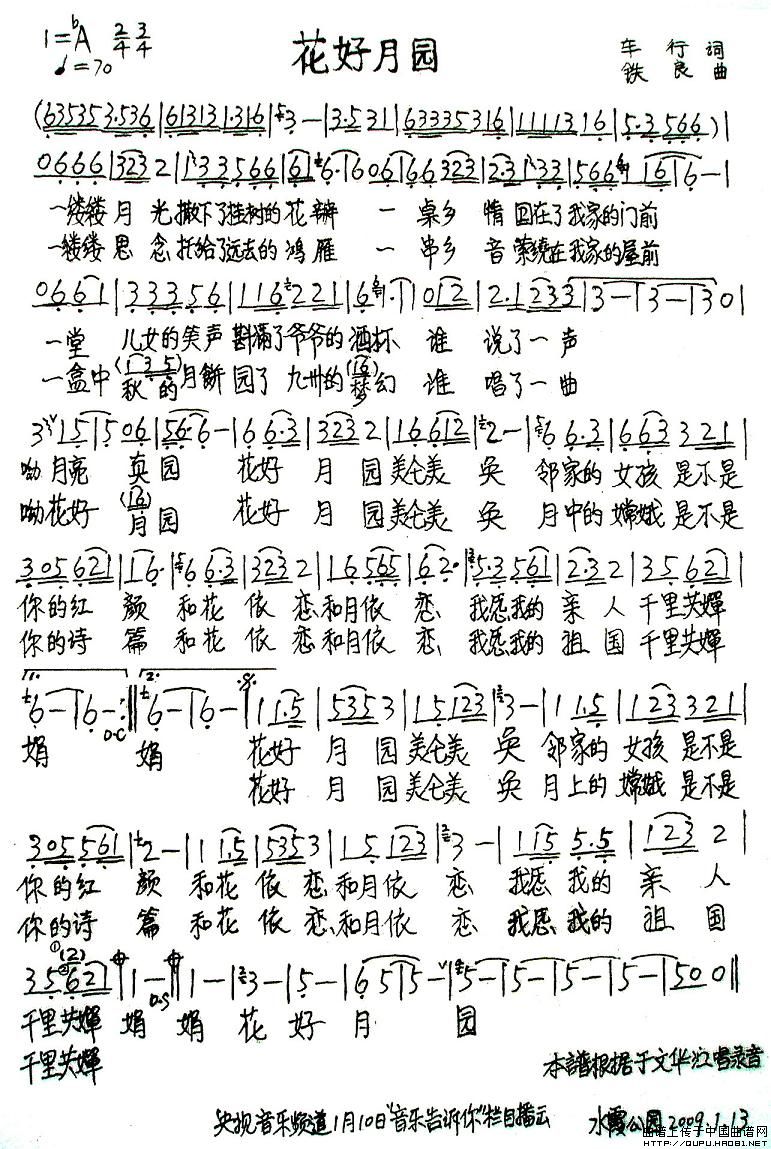 1=♭A 2/4 3/4
♩=70
花好月园
车行 词
铁良 曲
(63535 3.536|613131.316|53—|3.531|633335316|1111316|5.3566)|
0666|3232|1333566|61
一缕缕月光撒下了桂树的花瓣 一桌乡情回在了我家的门前
一缕缕思念托给了远去的鸿雁 一串乡音萦绕在我家的屋前
0661|33356|116221|6.|012|2.1233|3—|3—|30|
一堂儿女的笑声斟满了爷爷的酒杯 谁说了一声
一盒中(135)秋的月餅园了九卅的(16)梦幻 谁唱了一曲
3 15|506|566—|66.3|3232|16612|2—|66.3|663321|
呦月亮真园 花好月园美仑美奂 邻家的女孩是不是
呦花好(16)月园 花好月园美仑美奂 月中的嫦娥是不是
305621|16.|66.3|3232|16565|62.|5.3561|2.32|35621|
你的红颜和花依恋和月依恋 我愿我的亲人千里共婵
你的诗篇和花依恋和月依恋 我愿我的祖国千里共婵
1. 2.
6—|6—:‖6—|6—‖11.5|5353|15123|3—|11.5|123321|
D.C
娟 娟 花好月园美仑美奂 邻家的女孩是不是
花好月园美仑美奂 月上的嫦娥是不是
305561|2—|11.5|5353|15123|3—|115 5.5|1232|
你的红颜和花依恋和月依恋 我愿我的亲人
你的诗篇和花依恋和月依恋 我愿我的祖国
35621|1—‖1—|3—|5—|655—|5—|5—|5—|5—|500‖
D.S
千里共婵娟 娟花好月园
千里共婵
本譜根据于文华演唱录音
央视音乐频道1月10日"音乐告诉你"栏目播云
水霞公园2009.1.13
曲谱上传于中国曲谱网
HTTP://QUPU.HAO81.NET